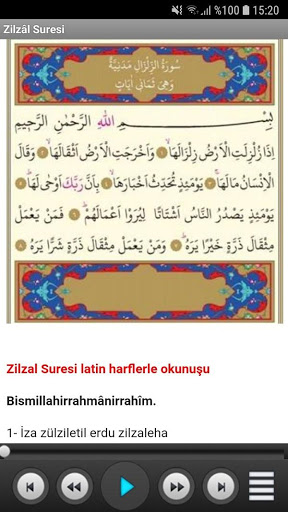 %100 15:20
Zilzâl Suresi
سُورَةُ الزِّلْزَالِ مَدَنِيَّةٌ
وَهِيَ ثَمَانِي اٰيَاتٍ
بِسْمِ اللّٰهِ الرَّحْمٰنِ الرَّحِيمِ
اِذَا زُلْزِلَتِ الْاَرْضُ زِلْزَالَهَا ۙ ١ وَاَخْرَجَتِ الْاَرْضُ اَثْقَالَهَا ۙ ٢ وَقَالَ
الْاِنْسَانُ مَالَهَا ۚ ٣ يَوْمَئِذٍ تُحَدِّثُ اَخْبَارَهَا ۙ ٤ بِاَنَّ رَبَّكَ اَوْحٰى لَهَا ۜ ٥
يَوْمَئِذٍ يَصْدُرُ النَّاسُ اَشْتَاتًا ۙ لِيُرَوْا اَعْمَالَهُمْ ۜ ٦ فَمَنْ يَعْمَلْ
مِثْقَالَ ذَرَّةٍ خَيْرًا يَرَهُ ۜ ٧ وَمَنْ يَعْمَلْ مِثْقَالَ ذَرَّةٍ شَرًّا يَرَهُ ٨
Zilzal Suresi latin harflerle okunuşu
Bismillahirrahmânirrahîm.
1- İza zülziletil erdu zilzaleha